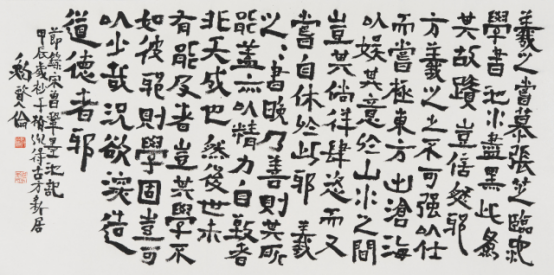 羲之嘗慕張芝臨池
學書池水盡黑此為
其故蹟豈信然邪
方羲之之不可强以仕
而嘗極東方出滄海
以娱其意於山水之間
豈其倘徉肆恣而又
嘗自休於此邪 羲
之〻書晚乃善則其所
能蓋亦以精力自致者
非天成也然後世未
有能及者豈其學不
如彼邪則學固豈可
以少哉況欲深造
道德者邪
節錄宋曾鞏墨池記
甲辰歲秋于得古方齋居